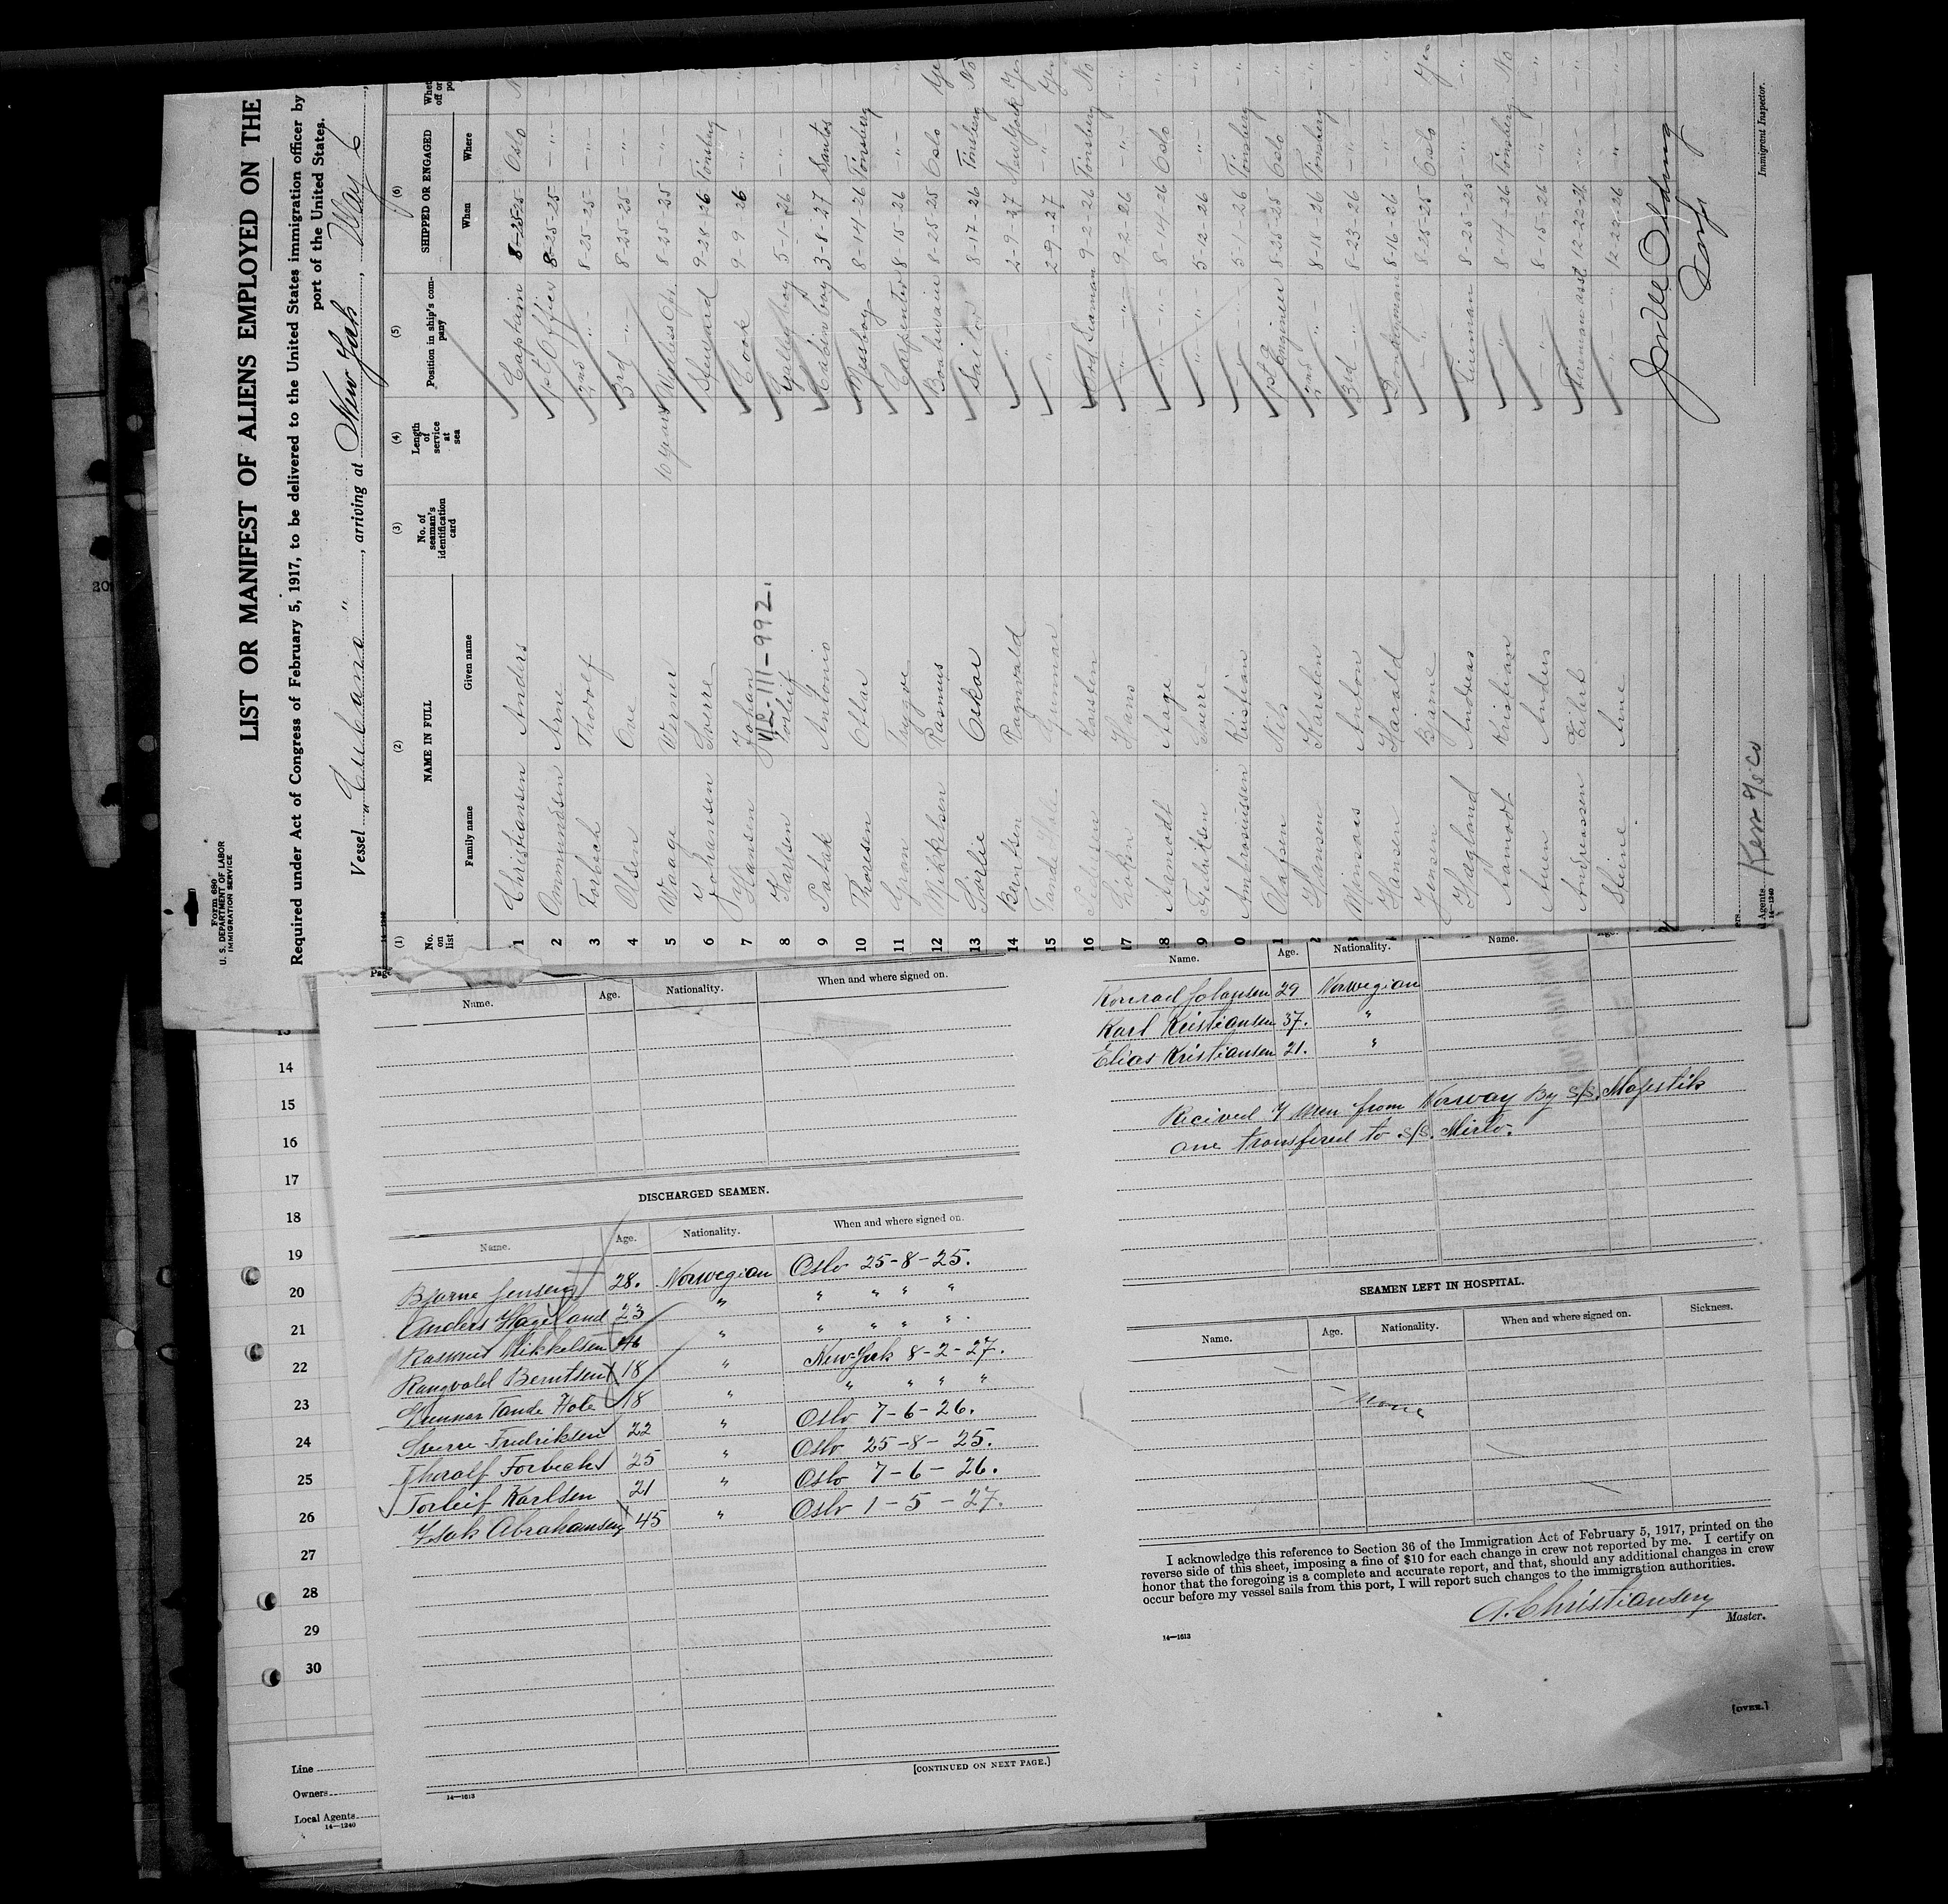 Form 680
U. S. DEPARTMENT OF LABOR
IMMIGRATION SERVICE
LIST OR MANIFEST OF ALIENS EMPLOYED ON THE
Required under Act of Congress of February 5, 1917, to be delivered to the United States immigration officer by
port of the United States.
Vessel " ", arriving at New York, May 6
14-1240
(1) (2) (3) (4) (5) (6)
No. on list NAME IN FULL No. of seaman's identification card Length of service at sea Position in ship's company SHIPPED OR ENGAGED
Family name Given name When Where
1 Christiansen Anders Captain 8-25-25 Oslo
2 Ommundsen Arne 1st Officer 8-25-25 -"-
3 Forbech Thorolf 2nd -"- 8-25-25 -"-
4 Olsen Ove 3rd -"- 8-25-25 -"-
5 Waage Werner 10 years Wireless Opr. 8-25-25 -"-
6 Johansen Sverre Steward 9-28-26 Tönsberg
7 Hansen Johan Cook 9-9-26 "
VL-111-992.
8 Karlsen Torleif Galleyboy 5-1-26 -"-
9 Antonio Cabinboy 3-8-27 Santos
10 Thoresen Ottar Messboy 8-14-26 Tönsberg
11 Gron Trygve Carpenter 8-15-26 -"-
12 Mikkelsen Rasmus Boatswain 8-25-25 Oslo
13 Sörlie Oskar Sailor 8-17-26 Tönsberg No
14 Berntsen Ragnvald " 2-9-27 New York Yes
15 Tande Hole Gunnar 2-9-27 -"- Yes
16 Pedersen Karsten Ord Seaman 9-2-26 Tönsberg No
17 Hans -"- 9-2-26 "
18 Aamodt Aage -"- 8-14-26 Oslo
9 Sverre " 5-12-26 -"-
0 Ambrosiussen Kristian -"- 5-1-26 Tönsberg
1 Olafsen Nils 1st Engineer 8-25-25 Oslo
2 Hansen Karsten 2nd " 8-18-26 Tönsberg
3 Anton 3rd -"- 8-23-26 -"-
Hansen Harald Donkeyman 8-16-26 "
Jensen Bjarne -"- 8-25-25 Oslo
Hagland Andreas Fireman 8-25-25 -"-
Aamodt Kristian " 8-14-26 Tönsberg No
Anders -"- 8-15-26 "
Andreassen Eilert Fireman asst 12-22-26 -"-
Steine Arne -"- 12-22-26 "
Immigrant Inspector.
Agents
14-1240
Page
Name. Age. Nationality. When and where signed on.
DISCHARGED SEAMEN.
Name. Age. Nationality. When and where signed on.
Bjarne Jensen 28. Norwegian Oslo 25-8-25.
Anders Hageland 23 " " " " "
Rasmus Mikkelsen 46 " " " " "
Rangvald Berntsen 18 " New-York 8-2-27.
Gunnar Tande Hole 18 " " " " "
Sverre Fredriksen 22 " Oslo 7-6-26.
Thoralf Forbech 25 " Oslo 25-8-25.
Torleif Karlsen 21 " Oslo 7-6-26.
Isak Abrahamsen 45 " Oslo 1-5-27.
[CONTINUED ON NEXT PAGE.]
14—1613
Name. Age. Nationality. Name.
Konrad 29 Norwegian
Karl Kristiansen 37. "
Elias Kristiansen 21. "
Recived 7 men from Norway By s/s. Majestik
one transfired to s/s. Mirlo.
SEAMEN LEFT IN HOSPITAL.
Name. Age. Nationality. When and where signed on. Sickness.
None
I acknowledge this reference to Section 36 of the Immigration Act of February 5, 1917, printed on the
reverse side of this sheet, imposing a fine of $10 for each change in crew not reported by me. I certify on
honor that the foregoing is a complete and accurate report, and that, should any additional changes in crew
occur before my vessel sails from this port, I will report such changes to the immigration authorities.
A. Christiansen
Master.
14—1613
[OVER.]
20
13
14
15
16
17
18
19
20
21
22
23
24
25
26
27
28
29
30
Line
Owners
Local Agents
14—1240